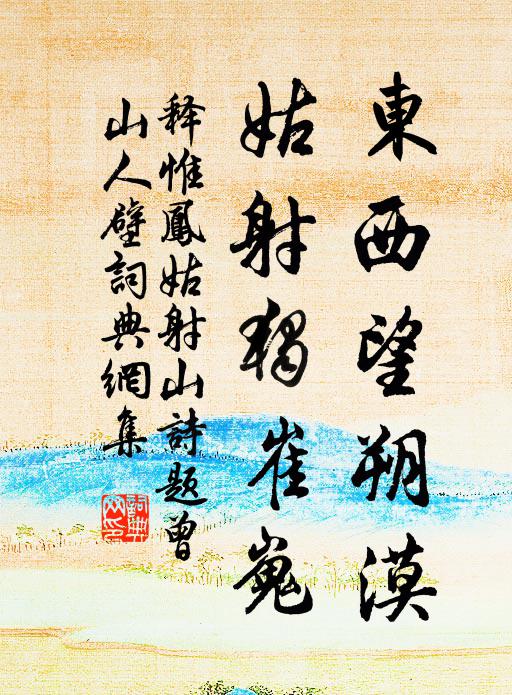 東西望朔漠
姑射獨崔嵬
释惟鳳姑射山詩題曾
山人壁詞典網集